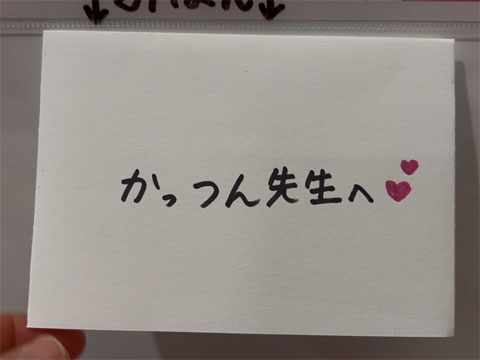 かっつん先生へ